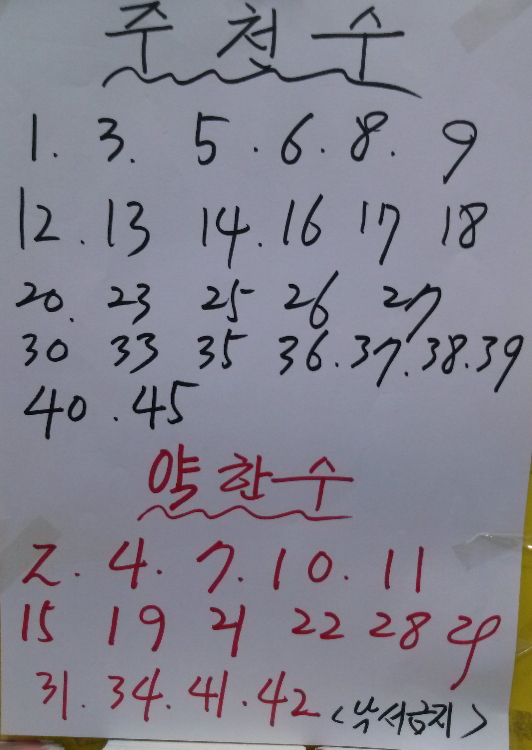 주천수
1. 3. 5. 6. 8. 9
12. 13 14. 16 17 18
20. 23 25 26 27
30 33 35 36. 37. 38. 39
40. 45
약한수
2. 4. 7. 10. 11
15 19 21 22 28 29
31. 34. 41. 42 <낙서금지>